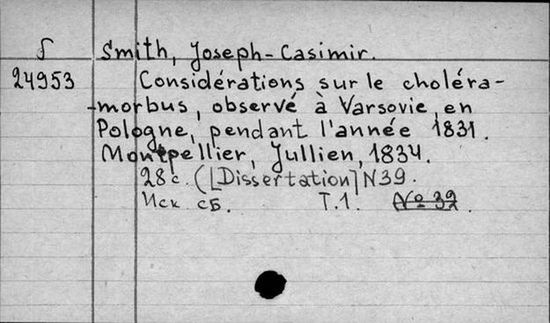 S Smith, Joseph-Casimir.
24953 Considérations sur le choléra-
-morbus, observé à Varsovie, en
Pologne, pendant l'année 1831.
Montpellier, Jullien, 1834.
28 c. ([Dissertation] N39.
Иск сб. T.1. № 39.